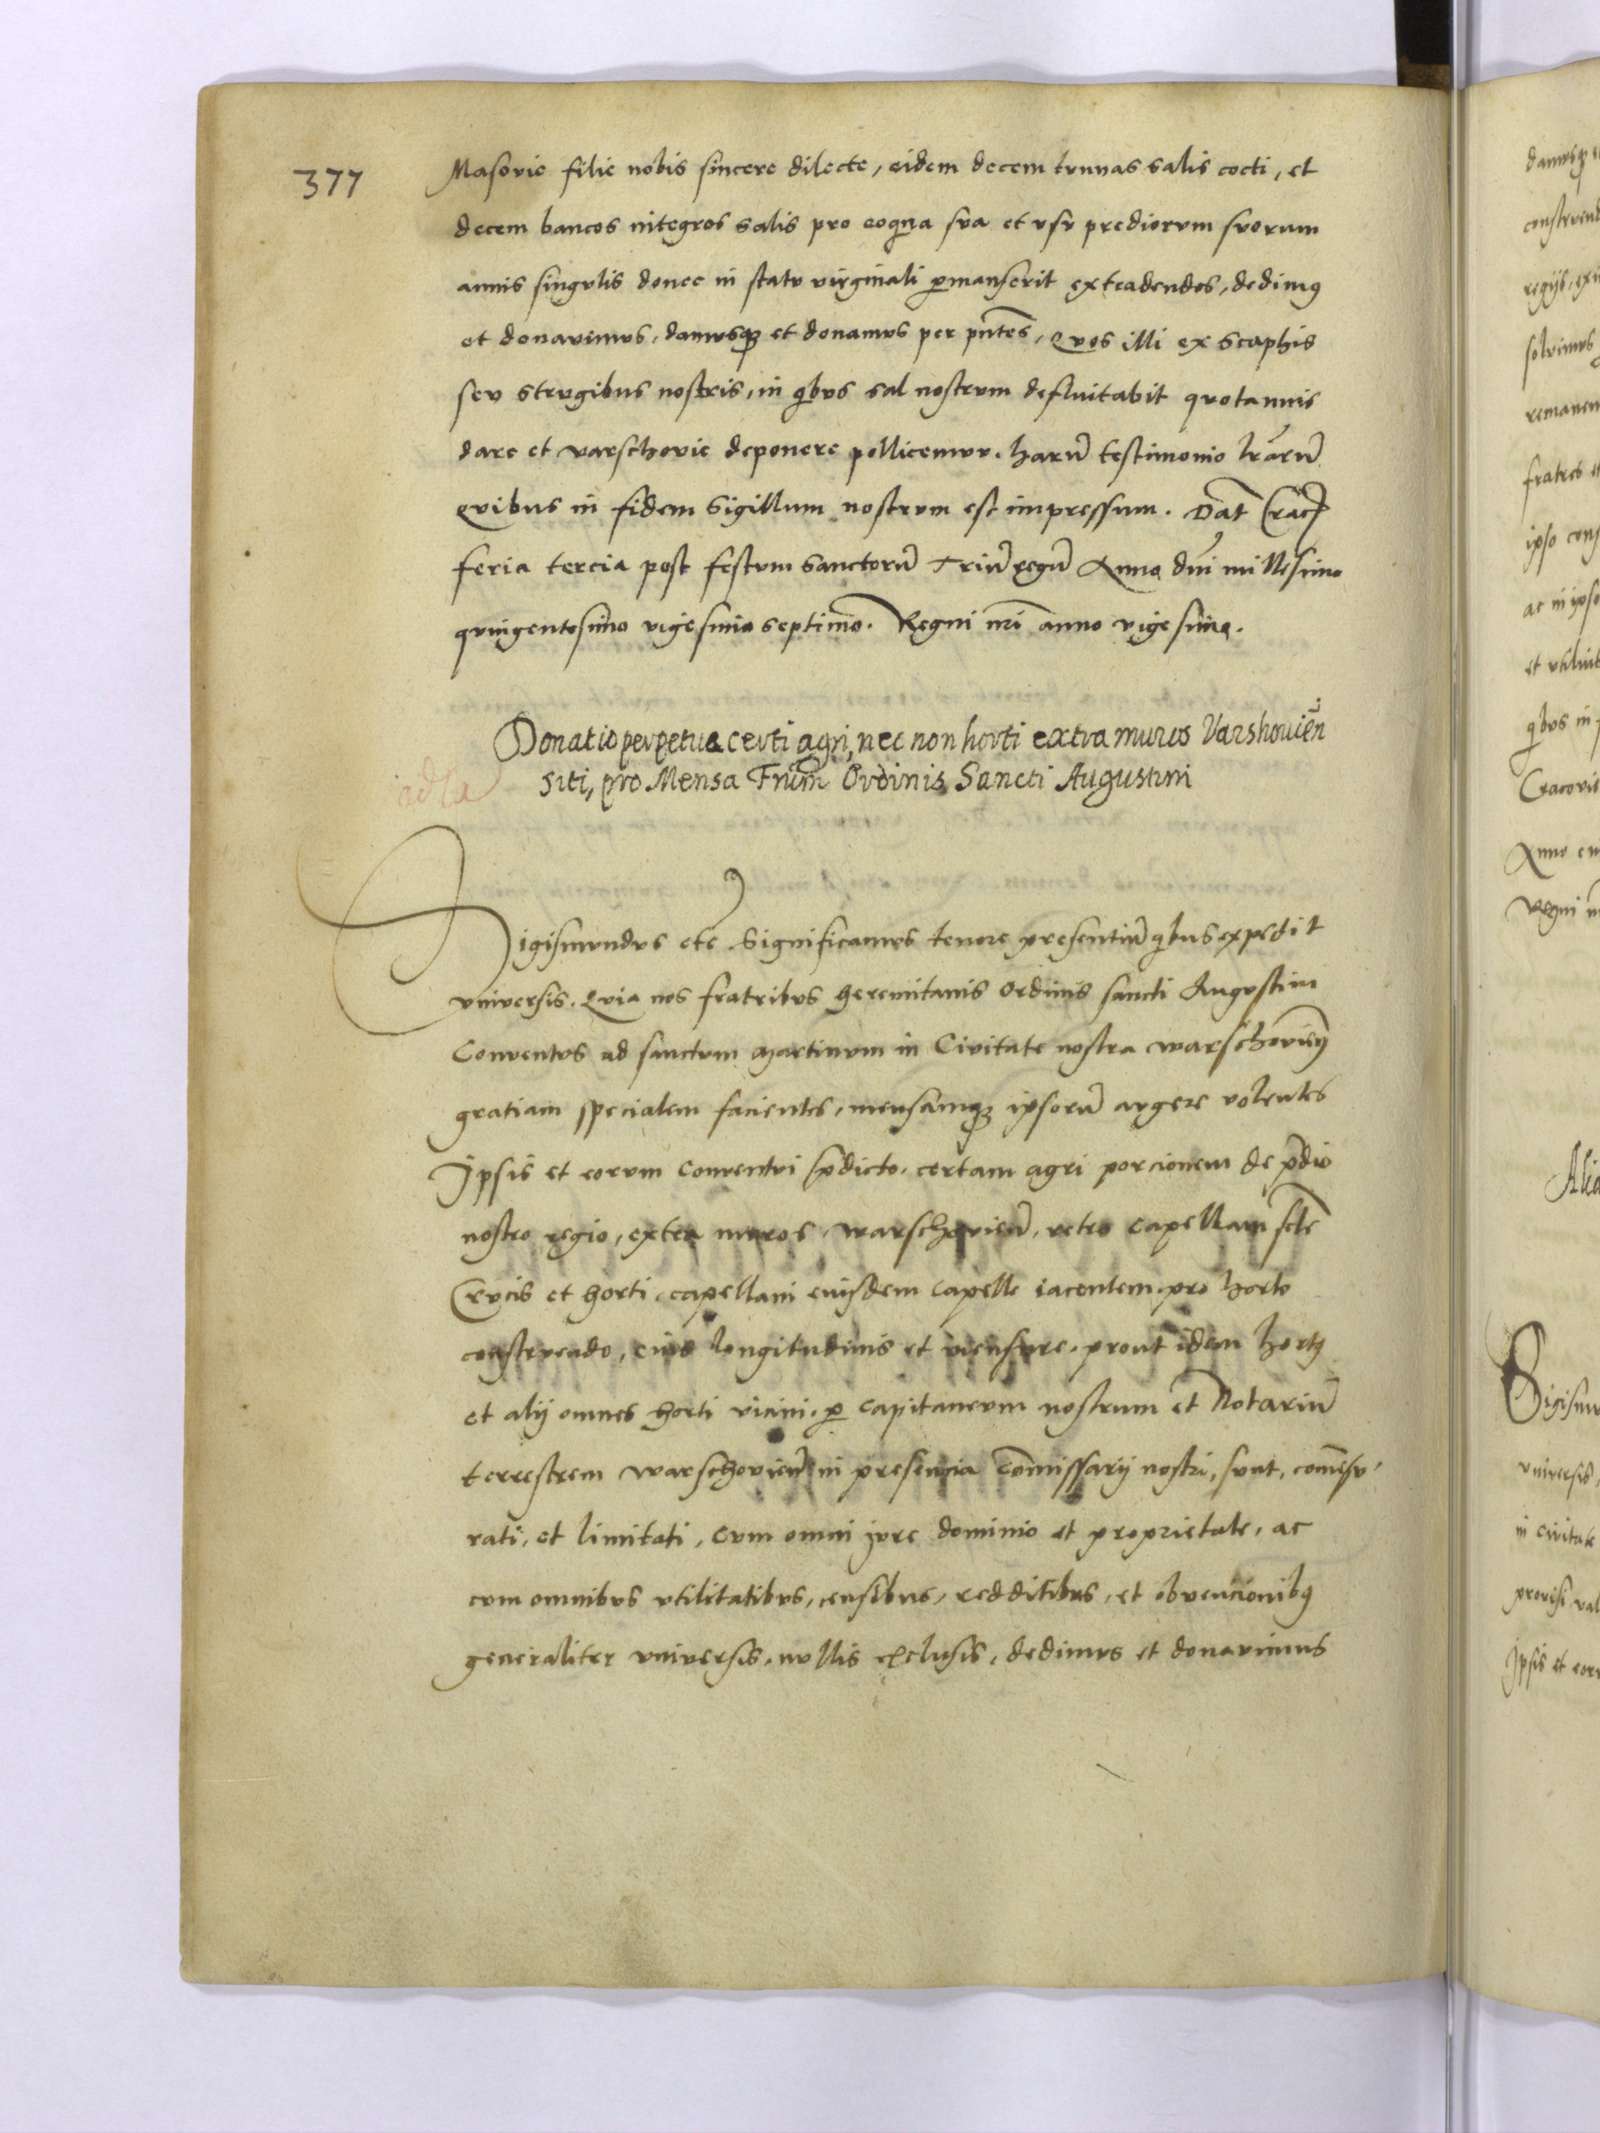 377
Masovie filie nobis sincere dilecte, eidem decem tunnas salis cocti, et
decem bancos integros salis pro coq̃na sua et vsv prediorvm svorum
annis singvlis donec in statv virginali ꝑmanserit extradendos, dedimꝰ
et donavimvs, damvsqȝ et donamvs per pn̄tes, Qvos illi ex scaphis
sev strvgibus nostris, in qͥbvs sal nostrvm defluitabit qvotannis
dare et varschovie deponere pollicemvr. harū testimonio lr̄arū
qvibus in fidem Sigillum nostrvm est impressum. Dat̄ Crac̄
feria tercia post festvm sanctorū Triū regū Anno dn̄i millesimo
qvingentesimo vigesimo septimo. Regni nr̄i anno vigesimo.
Donatio perpetua certi agri, nec non horti extra muros Varshovien̄
siti, pro Mensa Fr̄um Ordinis Sancti Augustini
Sigismvndvs etc̄. Significamvs tenore presentiū qͥbus expedit
vniversis. Qvia nos fratribvs heremitanis Ordinis sancti Avgvstini
Conventvs ad sanctvm Martinvm in Civitate nostra warschovien̄
gratiam specialem facientes, mensamqȝ ipsorū avgere volentes
Ipsis et eorvm conventvi p̄dicto, certam agri porcionem de p̄dio
nostro regio, extra mvros warschovien̄, retro capellam scte
Crvcis et horti capellani eivsdem capelle iacentem, pro horto
construendo, eivs longitudinis et mensvre, prout idem hortꝰ
et alij omnes horti vicini, ꝑ capitanevm nostrum et Notariū
terrestrem warschovien̄ in presencia Com̄issarij nostri, svnt, com̄ensv-
rati, et limitati, cvm omni jvre dominio et proprietate, ac
cvm omnibvs vtilitatibvs, censibus, redditibus, et obvencionibꝰ
generaliter vniversis, nvllis exclusis, dedimvs et donavimus